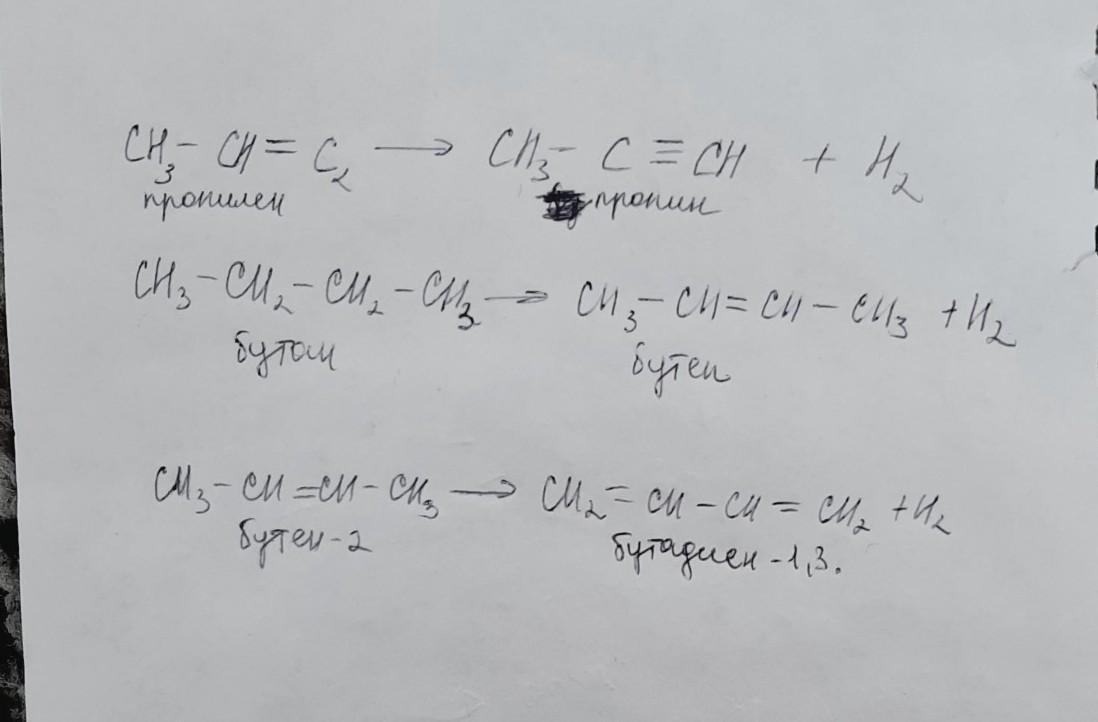 CH₃ - CH = C₂ → CH₃ - C ≡ CH + H₂
пропилен пропин
CH₃ - CH₂ - CH₂ - CH₃ → CH₃ - CH = CH - CH₃ + H₂
бутан бутен
CH₃ - CH = CH - CH₃ → CH₂ = CH - CH = CH₂ + H₂
бутен-2 бутадиен-1,3.